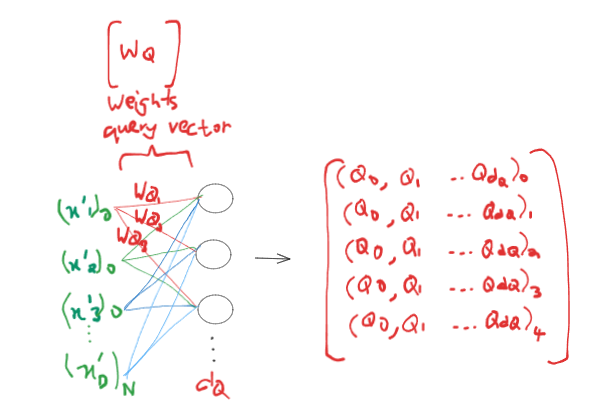 [WQ]
Weights
query vector
WQ₁
(x'₁)₀
WQ₂
WQ₃
(x'₂)₀
(x'₃)₀
⋮
(x'D)N
⋮
dQ
(Q₀, Q₁ ... QdQ)₀
(Q₀, Q₁ ... QdQ)₁
(Q₀, Q₁ ... QdQ)₂
(Q₀, Q₁ ... QdQ)₃
(Q₀, Q₁ ... QdQ)₄